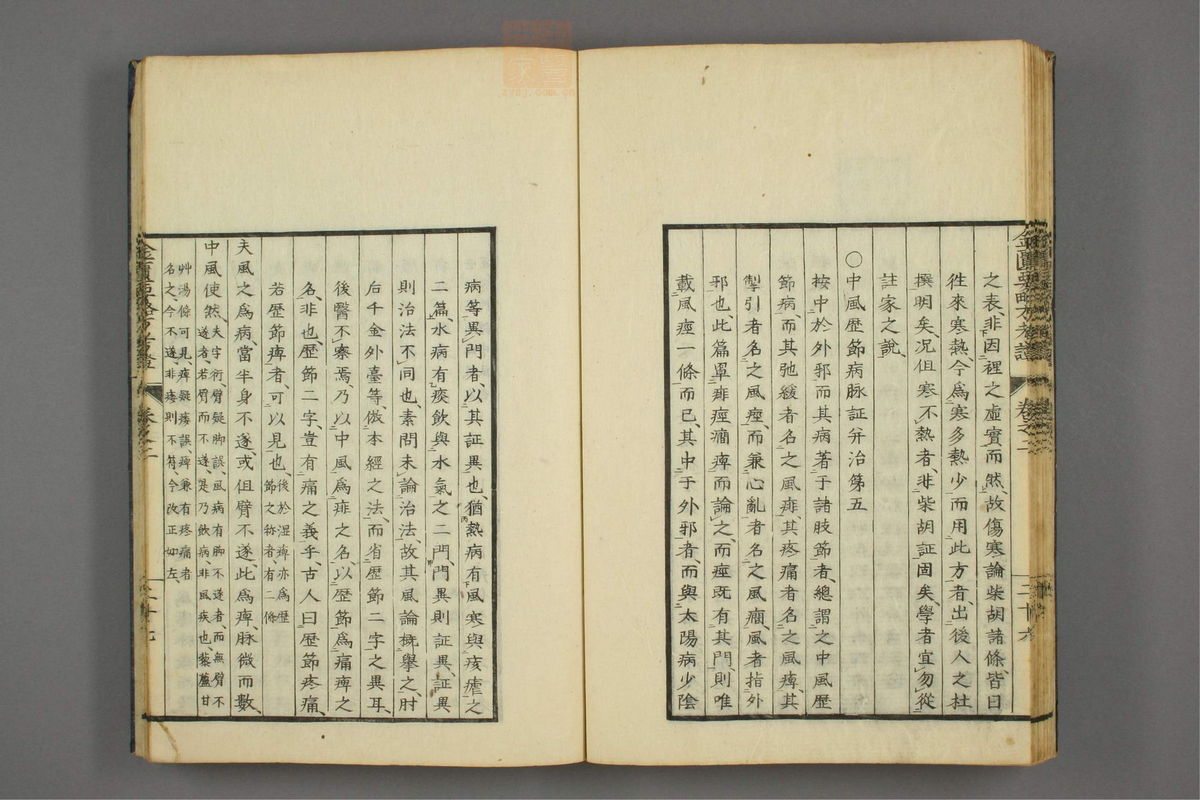 之表非因裡之虛實而然故傷寒論柴胡諸條皆曰
徃來寒熱今爲寒多熱少而用此方者出後人之杜
撰明矣况但寒不熱者非柴胡証固矣學者宜勿從
註家之說
○中風歷節病脉証并治第五
按中於外邪而其病著于諸肢節者總謂之中風歷
節病而其弛緩者名之風痱其疼痛者名之風痺其
掣引者名之風痙而兼心亂者名之風癎風者指外
邪也此篇單痱痙癎痺而論之而痙既有其門則唯
載風痙一條而已其中于外邪者而與太陽病少陰
病等異門者以其証異也猶熱病有風寒與痎瘧之
二篇水病有痰飲與水氣之二門門異則証異証異
則治法不同也素問未論治法故其風論概擧之肘
后千金外臺等倣本經之法而省歷節二字之異耳
後醫不察焉乃以中風爲痱之名以歷節爲痛痺之
名非也歷節二字豈有痛之義乎古人曰歷節疼痛
若歷節痺者可以見也後於湿痺亦爲歷
節之称者有二條
夫風之爲病當半身不遂或但臂不遂此爲痺脉微而數
中風使然夫字衍臂疑脚誤風病有脚不遂者而無臂不
遂者若臂而不遂是乃飲病非風疾也藜蘆甘
艸湯條可見痺疑痱誤痺兼有疼痛者
名之今不遂非痱則不符今改正如左
金匱要略方考證
卷之二
二十六
金匱要略方考證
卷之二
二十七
zydj.com.cn